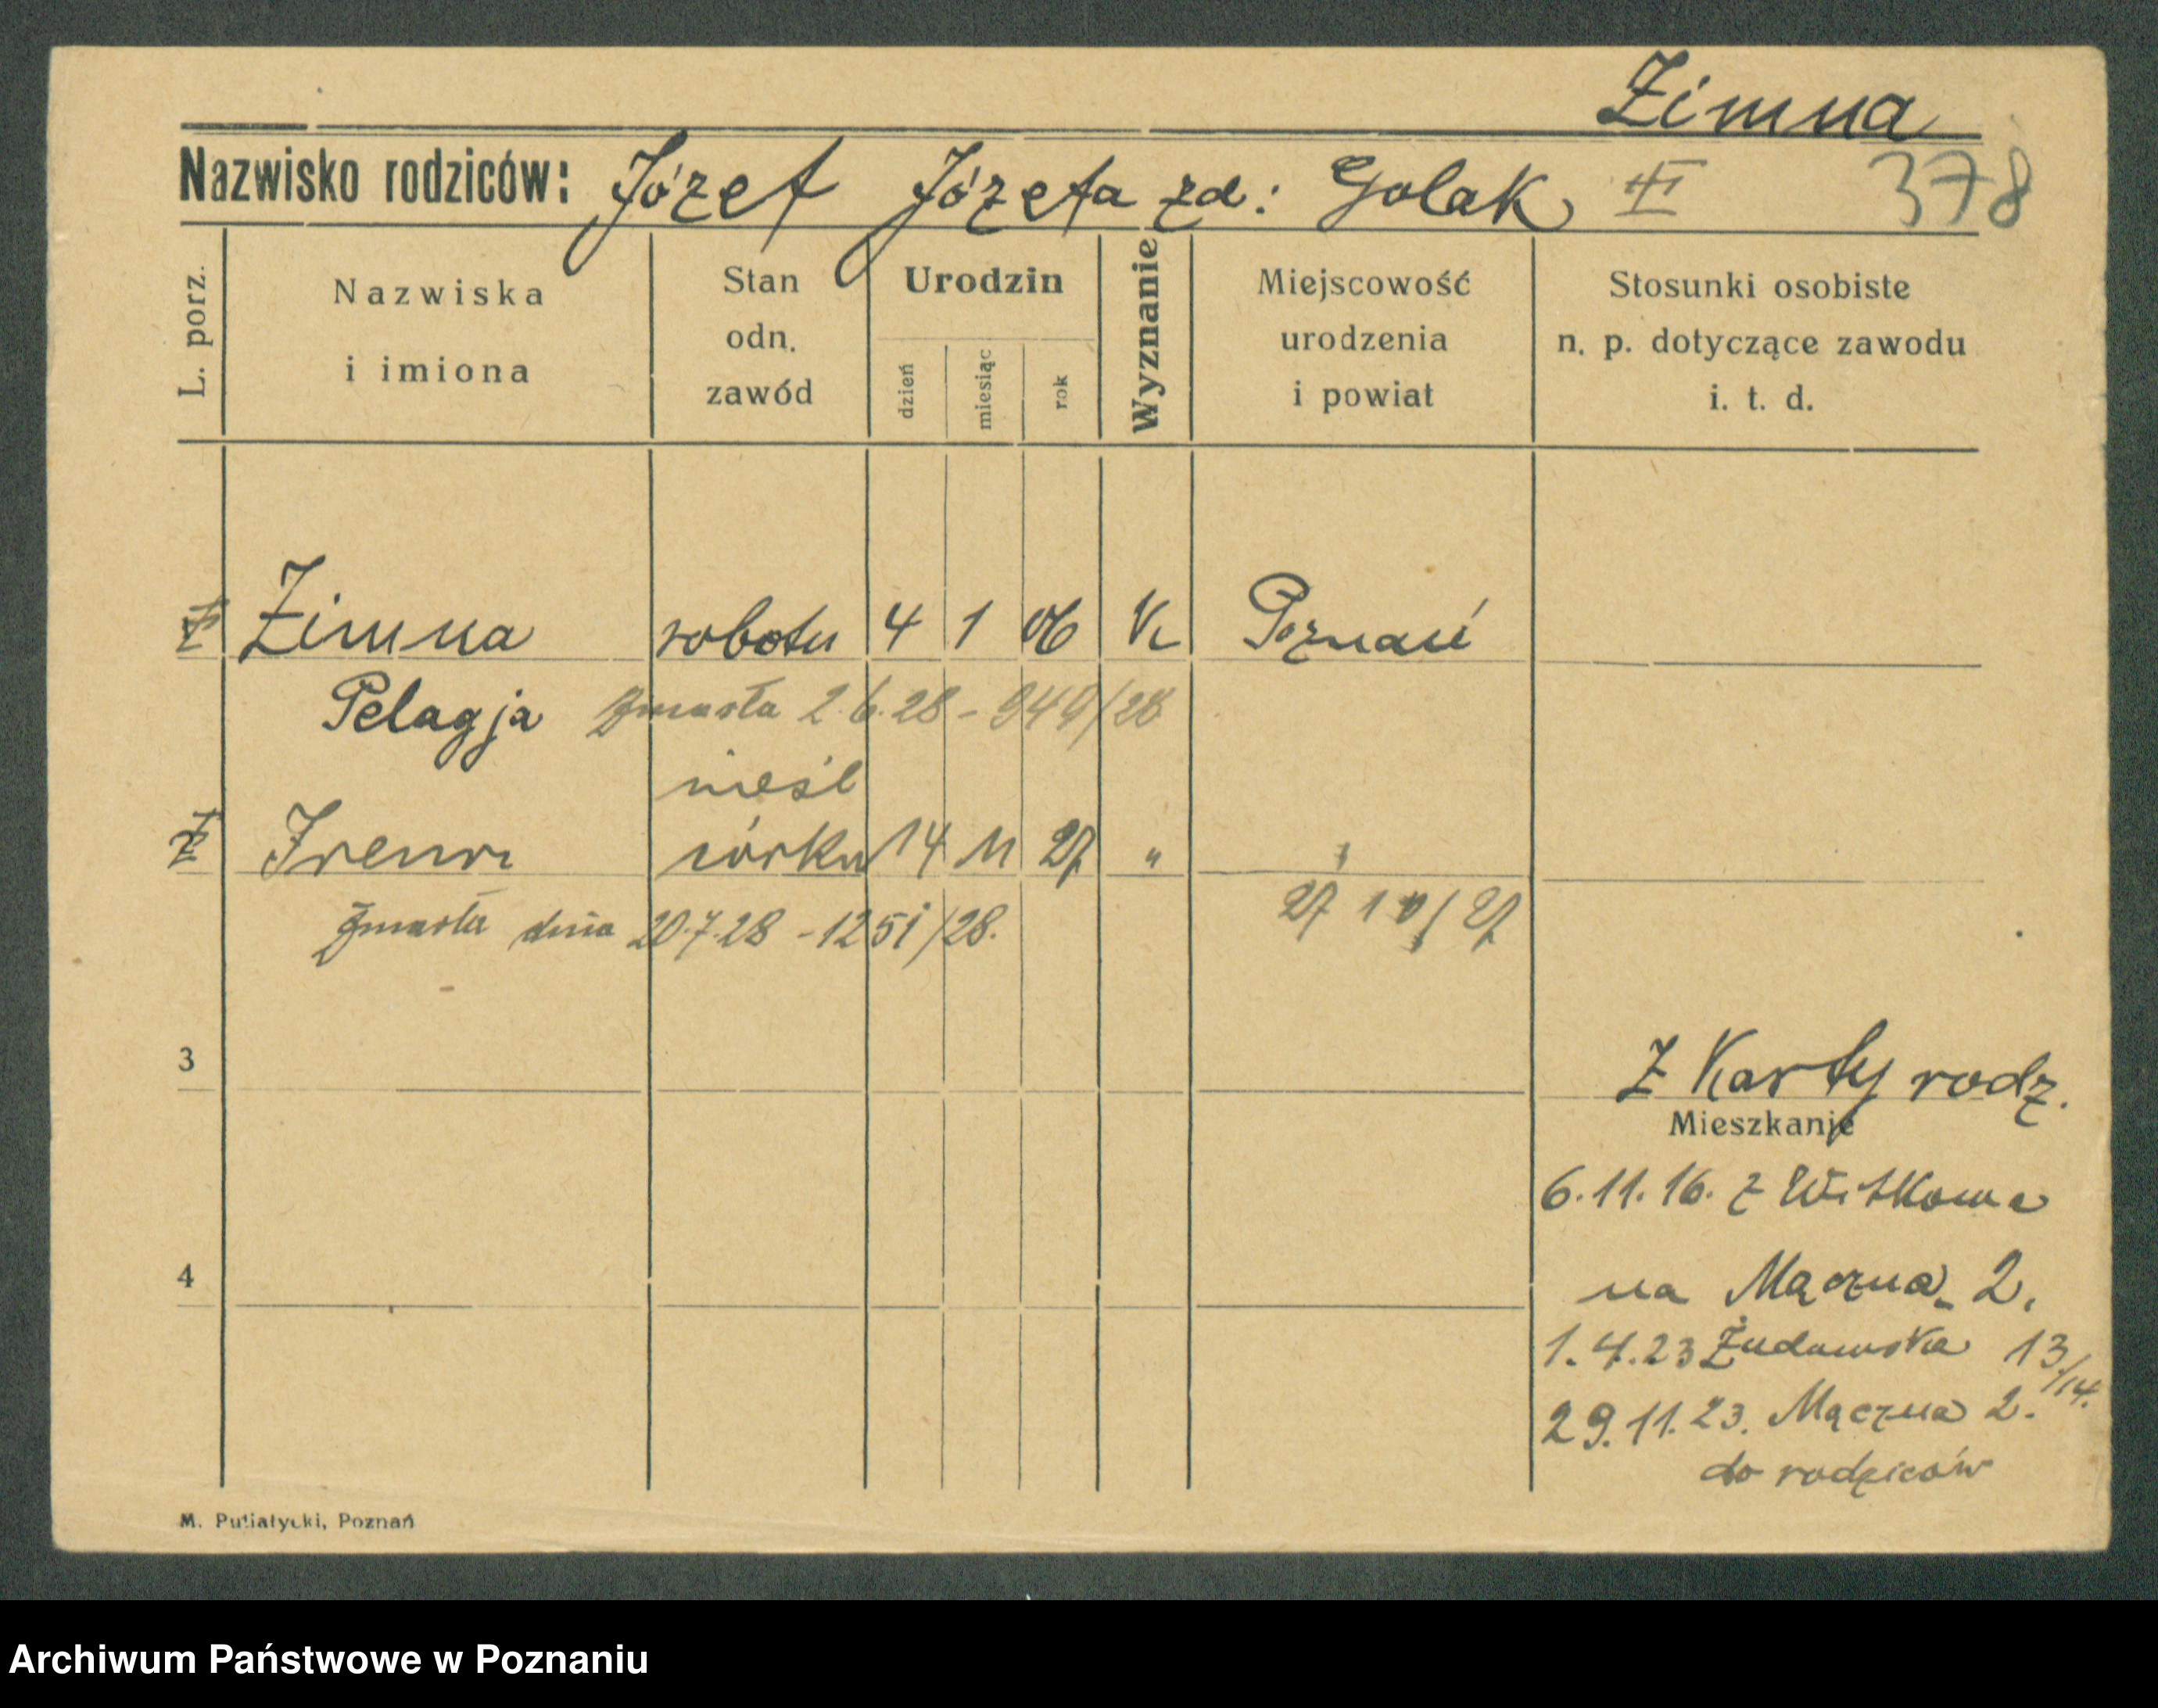 Zimna
Nazwisko rodziców: Józef Józefa zd: Golak III 378
L. porz.
Nazwiska
i imiona
Stan
odn.
zawód
Urodzin
dzień
miesiąc
rok
Wyznanie
Miejscowość
urodzenia
i powiat
Stosunki osobiste
n. p. dotyczące zawodu
i. t. d.
Zimna robotn 4 1 06 K Poznań
Pelagja zmarła 2.6.28 - 949/28
nieśl
Irena córka 14 11 27 "
27 10/27
zmarła dnia 20.7.28 - 1251/28.
3
Z Karty rodz.
Mieszkanie
6.11.16. z Witkowa
4
na Mączna 2.
1.4.23 Żydowska 13/14.
29.11.23. Mączna 2.
do rodziców
M. Putiatycki, Poznań
Archiwum Państwowe w Poznaniu